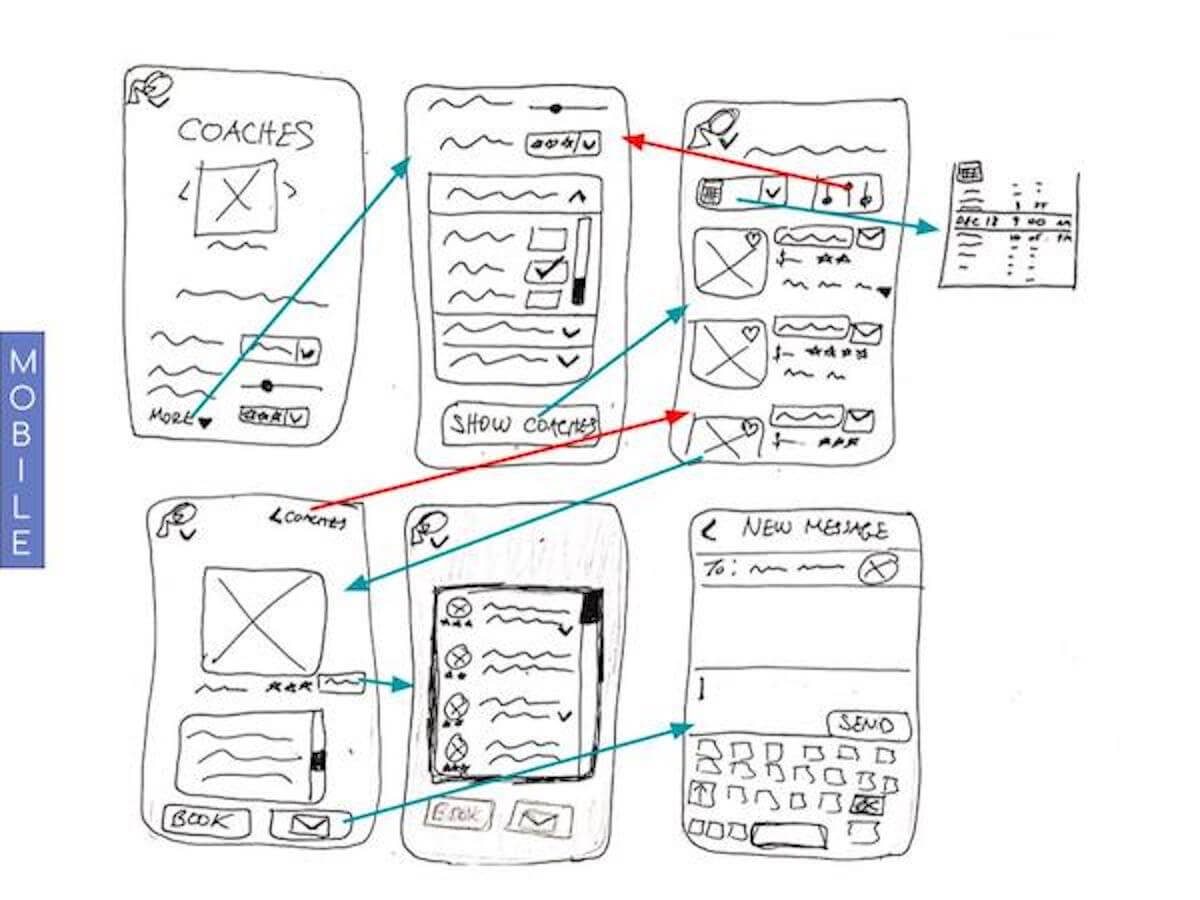 MOBILE
COACHES
MORE
SHOW COACHES
DEC 12 9 00 AM
COACHES
BOOK
BOOK
NEW MESSAGE
To:
SEND